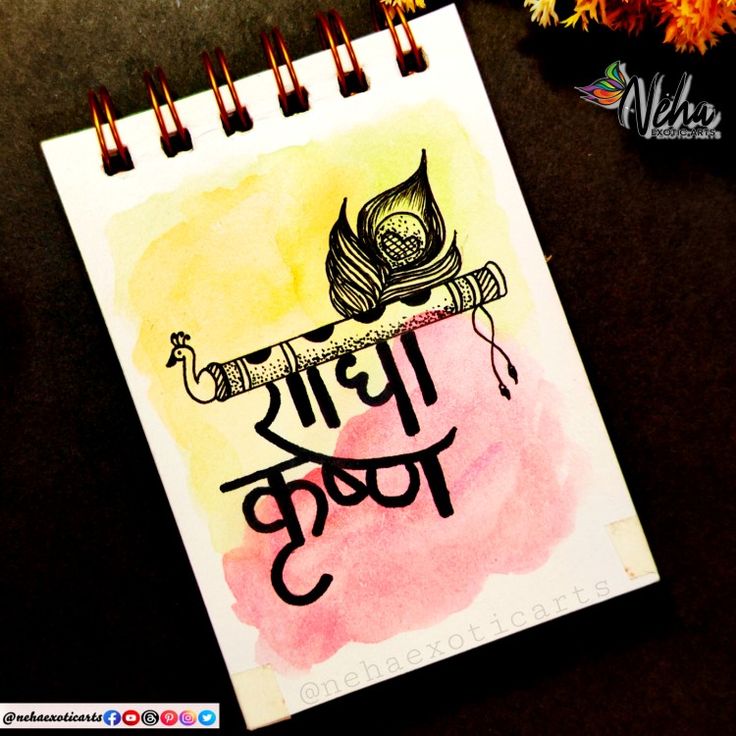 Neha
EXOTIC ARTS
राधा
कृष्ण
@nehaexoticarts
@nehaexoticarts